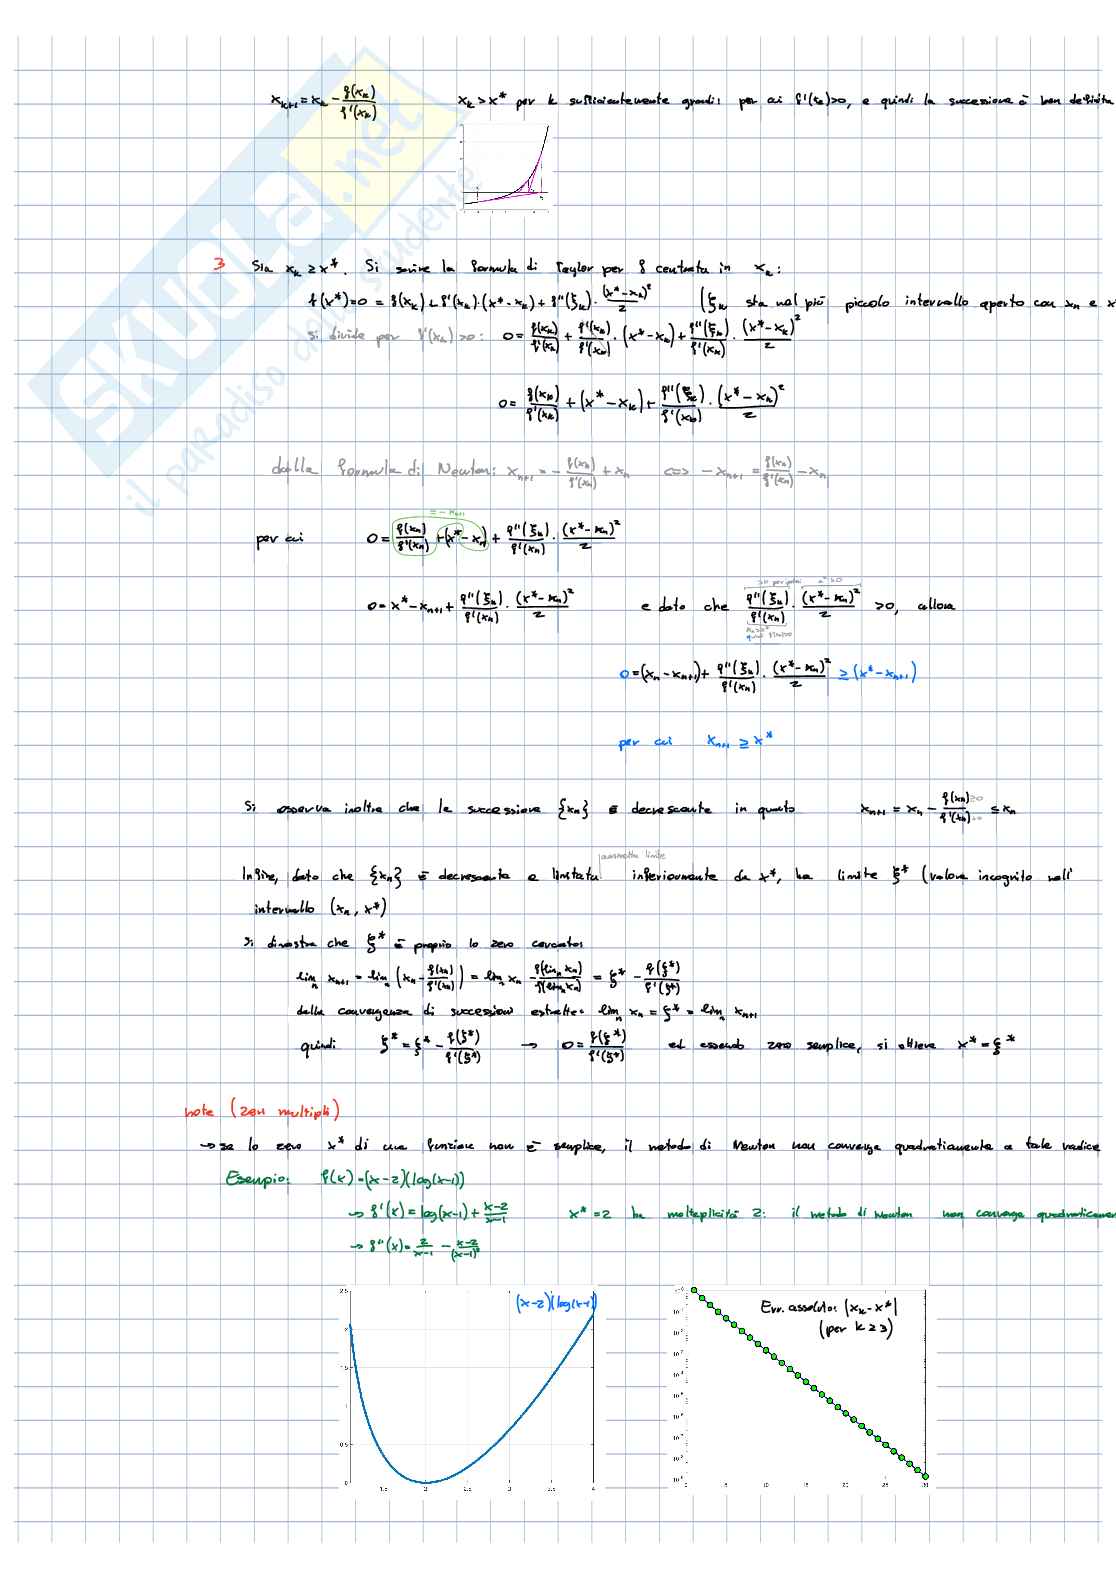 x_{k+1} = x_k - f(x_k)/f'(x_k)   x_k > x* per k sufficientemente grandi: per cui f'(x_k)>0, e quindi la successione è ben definita
3 Sia x_k ≥ x*. Si scrive la formula di Taylor per f centrata in x_k:
f(x*)=0 = f(x_k) + f'(x_k)·(x*-x_k) + f''(ξ_k)·(x*-x_k)²/2   (ξ_k sta nel più piccolo intervallo aperto con x_n e x
si divide per f'(x_k)>0:  0 = f(x_k)/f'(x_k) + f'(x_k)/f'(x_k)·(x*-x_k) + f''(ξ_k)/f'(x_k)·(x*-x_k)²/2
0 = f(x_k)/f'(x_k) + (x*-x_k) + f''(ξ_k)/f'(x_k)·(x*-x_k)²/2
dalla formula di Newton: x_{n+1} = -f(x_n)/f'(x_n) + x_n ⟺ -x_{n+1} = f(x_n)/f'(x_n) - x_n
= -x_{n+1}
per cui   0 = f(x_n)/f'(x_n) + (x*-x_n) + f''(ξ_n)/f'(x_n)·(x*-x_n)²/2
>0 per ipotesi
0 = x*-x_{n+1} + f''(ξ_n)/f'(x_n)·(x*-x_n)²/2   e dato che f''(ξ_n)/f'(x_n)·(x*-x_n)²/2 >0, allora
0 = (x_n-x_{n+1}) + f''(ξ_n)/f'(x_n)·(x*-x_n)²/2 ≥ (x*-x_{n+1})
per cui x_{n+1} ≥ x*
Si osserva inoltre che la successione {x_n} è decrescente in quanto   x_{n+1} = x_n - f(x_n)/f'(x_n) ≤ x_n
ammette limite
Infine, dato che {x_n} è decrescente e limitata inferiormente da x*, ha limite ξ* (valore incognito nell'
intervallo (x_n, x*)
Si dimostra che ξ* è proprio lo zero cercato:
lim_n x_{n+1} = lim_n (x_n - f(x_n)/f'(x_n)) = lim_n x_n - f(lim_n x_n)/f'(lim_n x_n) = ξ* - f(ξ*)/f'(ξ*)
dalla convergenza di successioni estratte: lim_n x_n = ξ* = lim_n x_{n+1}
quindi   ξ* = ξ* - f(ξ*)/f'(ξ*)   →   0 = f(ξ*)/f'(ξ*)   ed essendo zero semplice, si ottiene x* = ξ*
note (zeri multipli)
→ se lo zero x* di una funzione non è semplice, il metodo di Newton non converge quadraticamente a tale radice
Esempio:   f(x) = (x-2)(log(x-1))
→ f'(x) = log(x-1) + x-2/x-1   x*=2 ha molteplicità 2: il metodo di Newton non converge quadraticamen
→ f''(x) = 2/x-1 - x-2/(x-1)²
(x-2)(log(x-1))
2.5
1.5
0.5
0
1.5 2 2.5 3 3.5 4
Err. assoluto: |x_k-x*|
(per k≥3)
0 5 10 15 20 25 30
SKUOLA.net
il paradiso dello studente